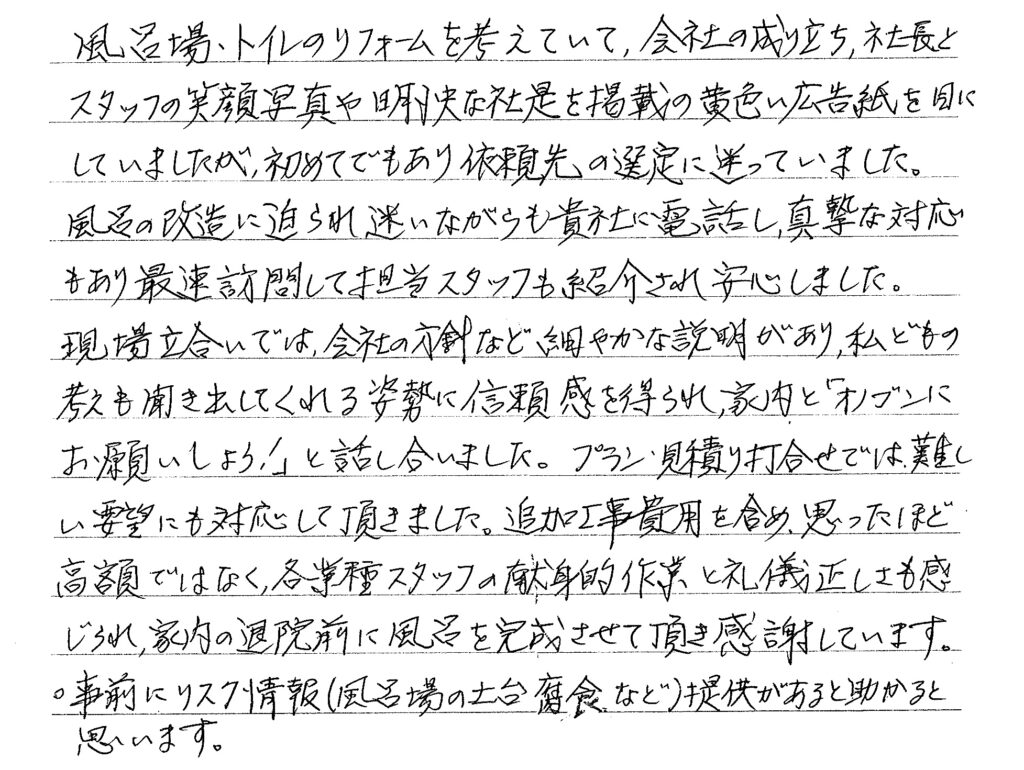 風呂場・トイレのリフォームを考えていて、会社の成り立ち、社長と
スタッフの笑顔写真や明快な社是を掲載の黄色い広告紙を目に
していましたが、初めてでもあり依頼先の選定に迷っていました。
風呂の改造に迫られ、迷いながらも貴社に電話し、真摯な対応
もあり最速訪問して担当スタッフも紹介され安心しました。
現場立合いでは、会社の方針など細やかな説明があり、私どもの
考えも聞き出してくれる姿勢に信頼感を得られ、家内と「オノゴンに
お願いしよう!」と話し合いました。プラン・見積り打合せでは、難し
い要望にも対応して頂きました。追加工事費用を含め、思ったほど
高額ではなく、各業種スタッフの献身的作業と礼儀正しさも感
じられ、家内の退院前に風呂を完成させて頂き感謝しています。
○事前にリスク情報(風呂場の土台腐食など)提供があると助かると
思います。